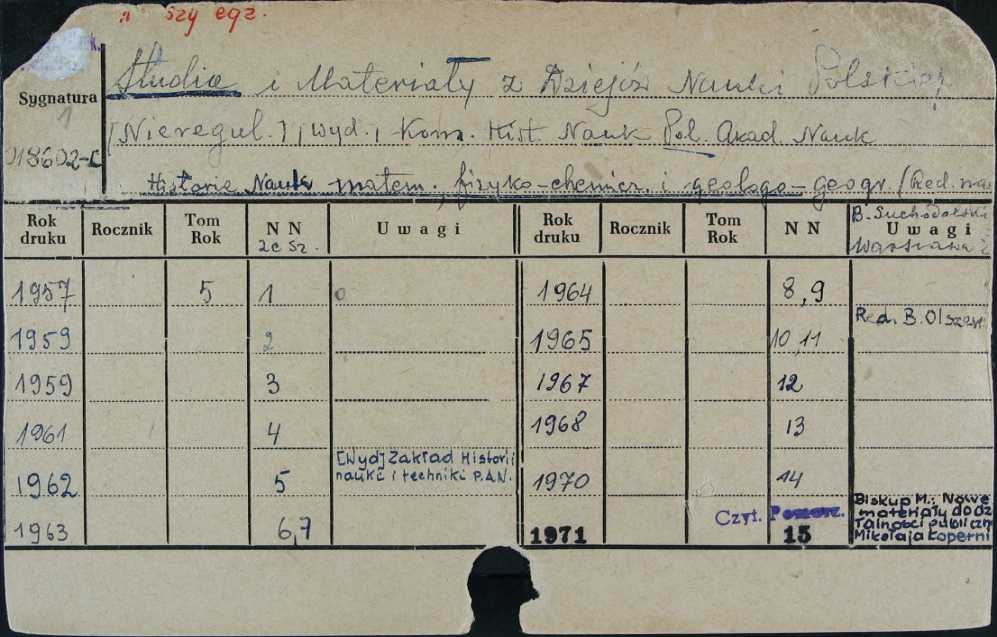 szy egz.
Studia i Materiały z Dziejów Nauki Polskiej
Sygnatura
[Nieregul.], wyd., Kom. Hist. Nauk Pol. Akad Nauk
18602-C
Historia Nauk matem., fizyko-chemicz. i geologo-geogr. (Red. na
Rok druku | Rocznik | Tom Rok | NN zesz. | Uwagi | Rok druku | Rocznik | Tom Rok | NN | B. Suchodolski Uwagi Warszawa
1957 | 5 | 1 | 1964 | 8,9
Red. B. Olszew
1959 | 2 | 1965 | 10,11
1959 | 3 | 1967 | 12
1961 | 4 | 1968 | 13
[Wyd] Zakład Historii
nauki i techniki P.A.N.
1962 | 5 | 1970 | 14
Biskup M.: Nowe
materiały do dz
Czyt.
1963 | 6,7 | 1971 | 15
łalności publiczn
Mikołaja Koperni